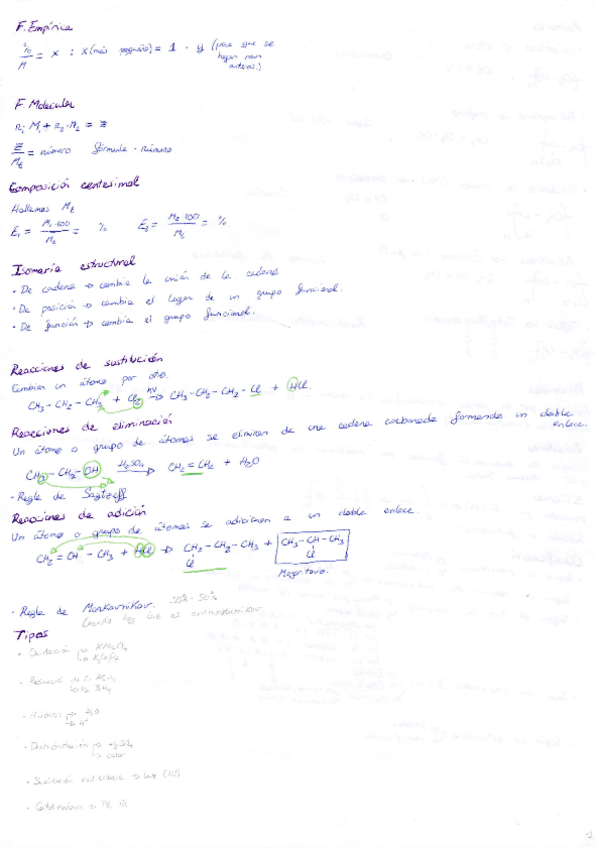 F. Empírica
%/M = x ; x (más pequeño) = 1 · y (para que se hagan num enteros.)
F. Molecular
= z
z/Mt = número fórmula · número
Composición centesimal
Hallamos Mt
E₁ = M₁·100/Mt = % E₂ = M₂·100/Mt = %
Isomería estructural
· De cadena → cambia la unión de la cadena
· De posición → cambia el lugar de un grupo funcional.
· De función → cambia el grupo funcional.
Reacciones de sustitución
Cambian un átomo por otro.
CH₃-CH₂-CH₃ + Cl₂ hν→ CH₃-CH₂-CH₂-Cl + HCl.
Reacciones de eliminación
Un átomo o grupo de átomos se eliminan de una cadena carbonada formando un doble enlace.
CH₃-CH₂-OH H₂SO₄→ CH₂=CH₂ + H₂O
· Regla de Saytzeff
Reacciones de adición
Un átomo o grupo de átomos se adicionan a un doble enlace.
CH₂=CH-CH₃ + HCl → CH₂-CH₂-CH₃ + CH₃-CH-CH₃
Cl Cl
Mayoritario.
· Regla de Markovnikov.
Tipos
· Oxidación → KMnO₄
· Hidrólisis → H₂O
· Deshidratación → H₂SO₄
→ calor